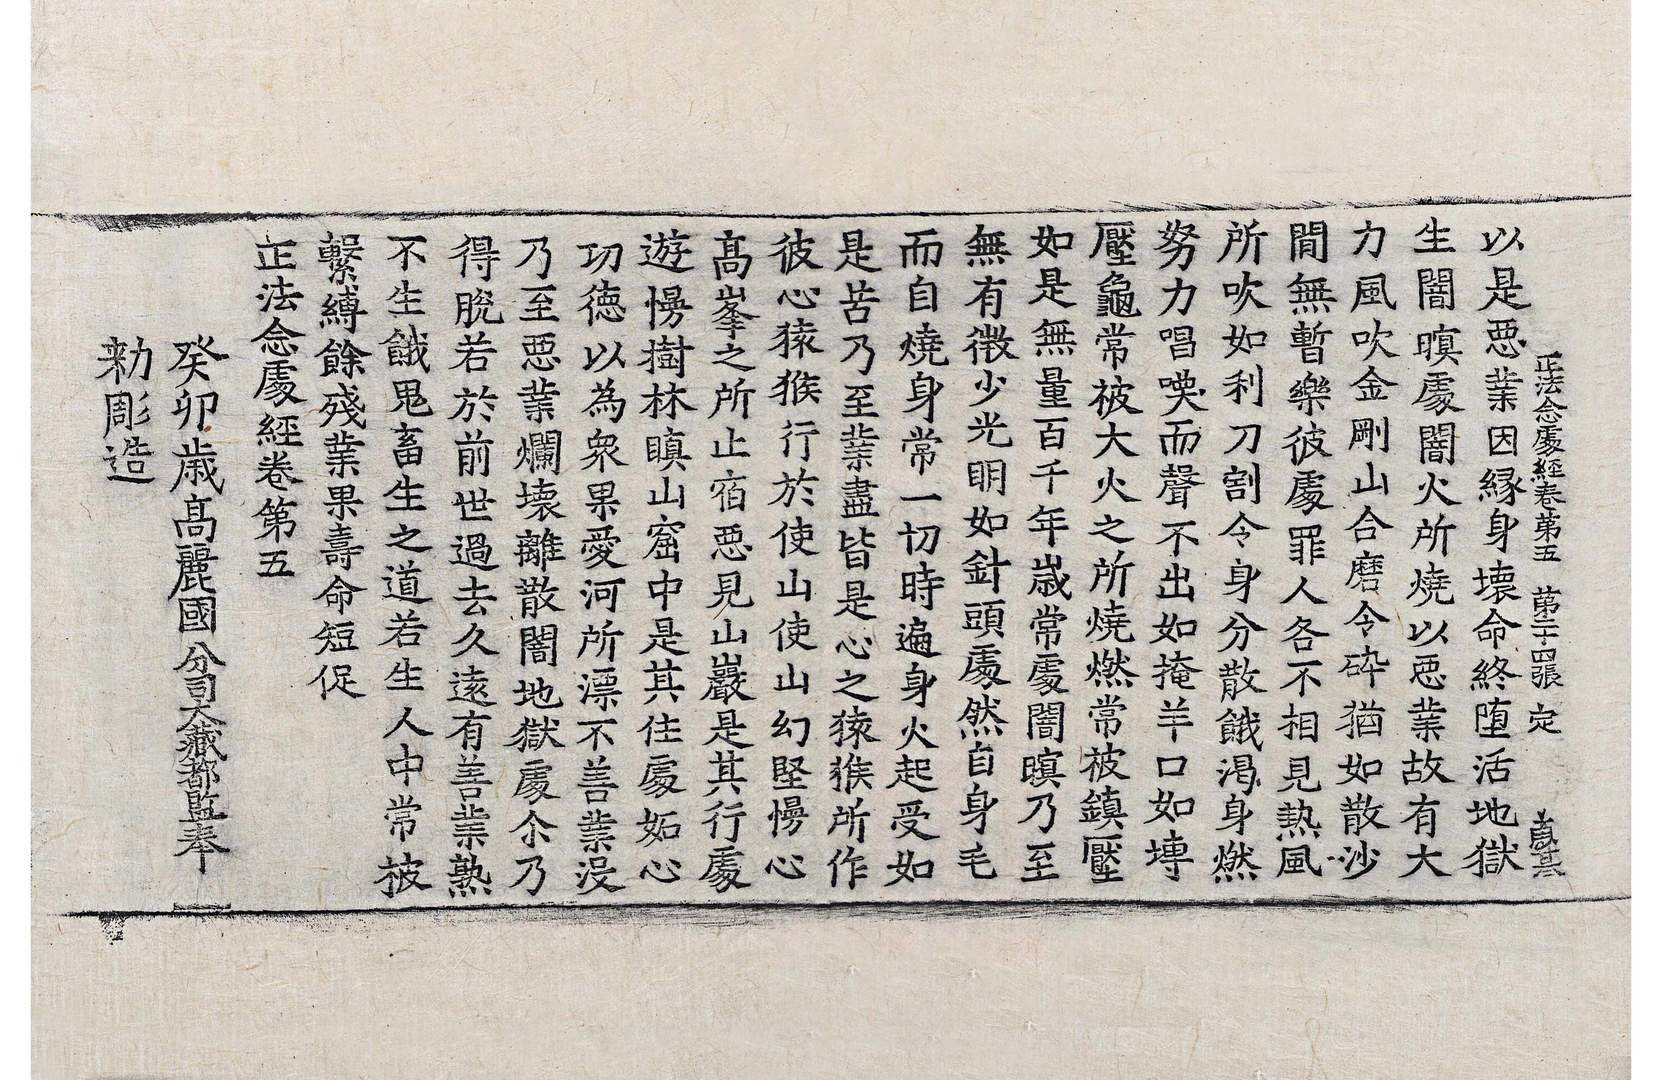 正法念處經卷第五 第二十四張 定
以是惡業因緣身壞命終堕活地獄
生闇暝處闇火所燒以惡業故有大
力風吹金剛山合磨令碎猶如散沙
間無暫樂彼處罪人各不相見熱風
所吹如利刀割令身分散餓渴身燃
努力唱喚而聲不出如掩羊口如塼
壓龜常被大火之所燒燃常被鎮壓
如是無量百千年歲常處闇暝乃至
無有微少光明如針頭處然自身毛
而自燒身常一切時遍身火起受如
是苦乃至業盡皆是心之猿猴所作
彼心猿猴行於使山使山幻堅慢心
髙峯之所止宿惡見山巖是其行處
遊慢樹林瞋山窟中是其住處妬心
功德以為衆果愛河所漂不善業没
乃至惡業爛壞離散闇地獄處尒乃
得脫若於前世過去久遠有善業熟
不生餓鬼畜生之道若生人中常被
繫縛餘殘業果壽命短促
正法念處經卷第五
癸卯歲髙麗國分司大藏都監奉
勑彫造